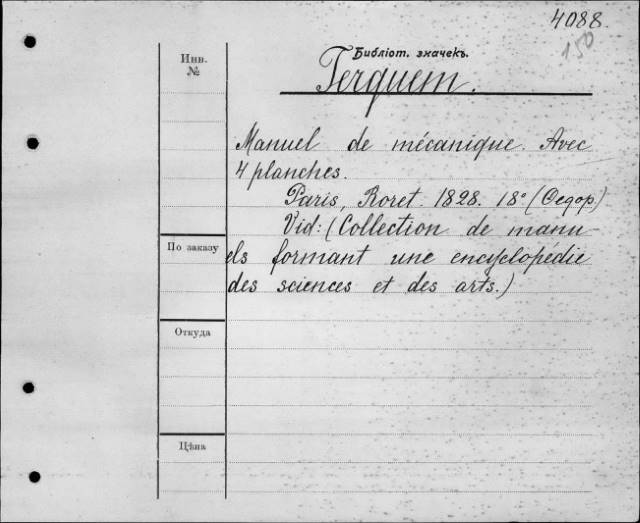 4088.
150
Инв.
№
Библіот. значекъ.
Terquem.
Manuel de mécanique. Avec
4 planches.
Paris, Roret. 1828. 18° (Федор.)
Vid: (Collection de manu-
els formant une encyclopédie
des sciences et des arts.)
По заказу
Откуда
Цѣна